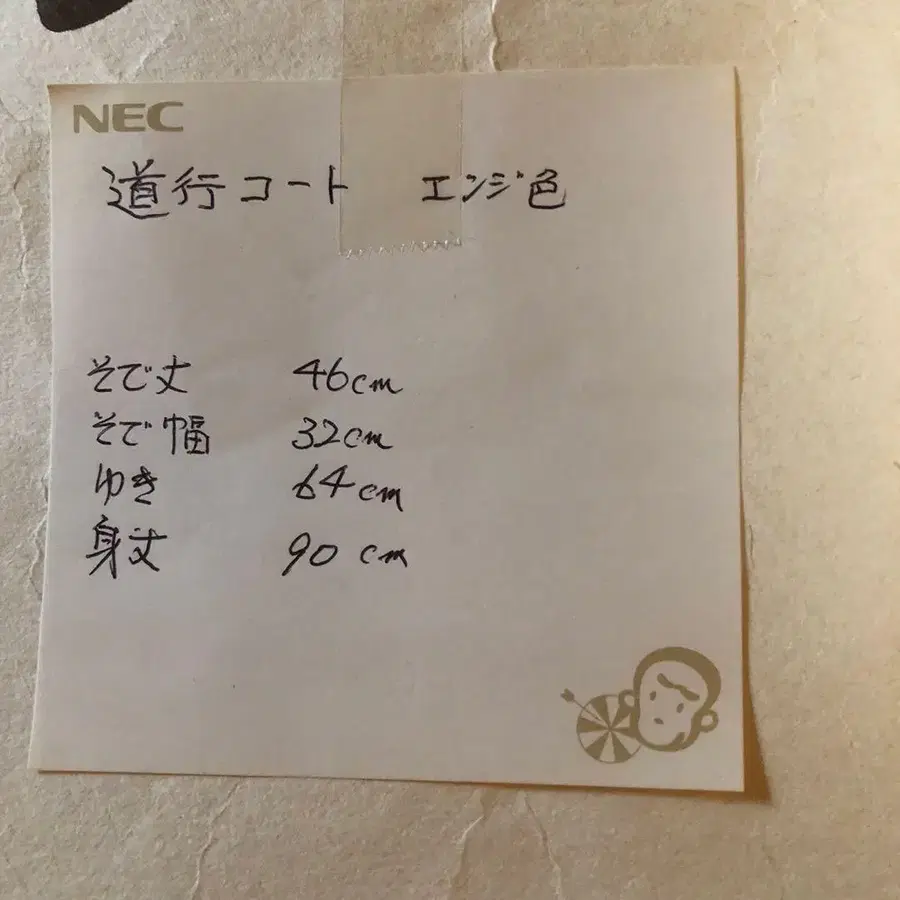 NEC
道行コート　エンジ色
そで丈　46cm
そで幅　32cm
ゆき　64cm
身丈　90cm